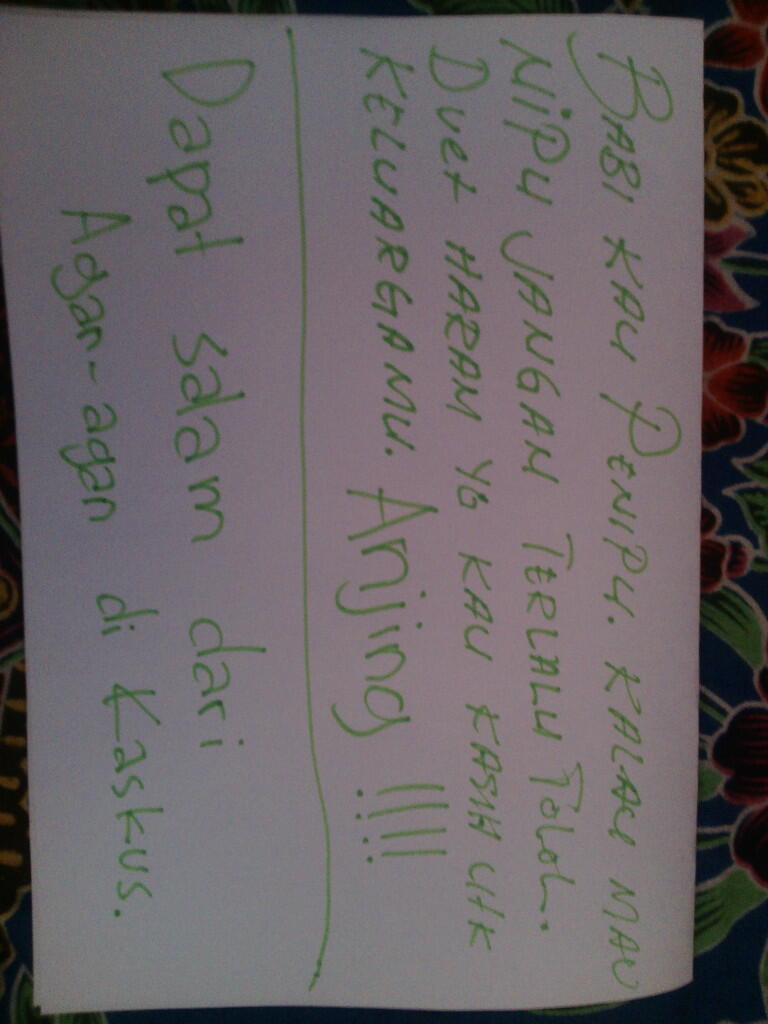 BABI KAU PENIPU. KALAU MAU
NIPU JANGAN TERLALU TOLOL.
Duet HARAM YG KAU KASIH UtK
KELUARGAMU. Anjing !!!!
Dapat salam dari
Agan-agan di Kaskus.